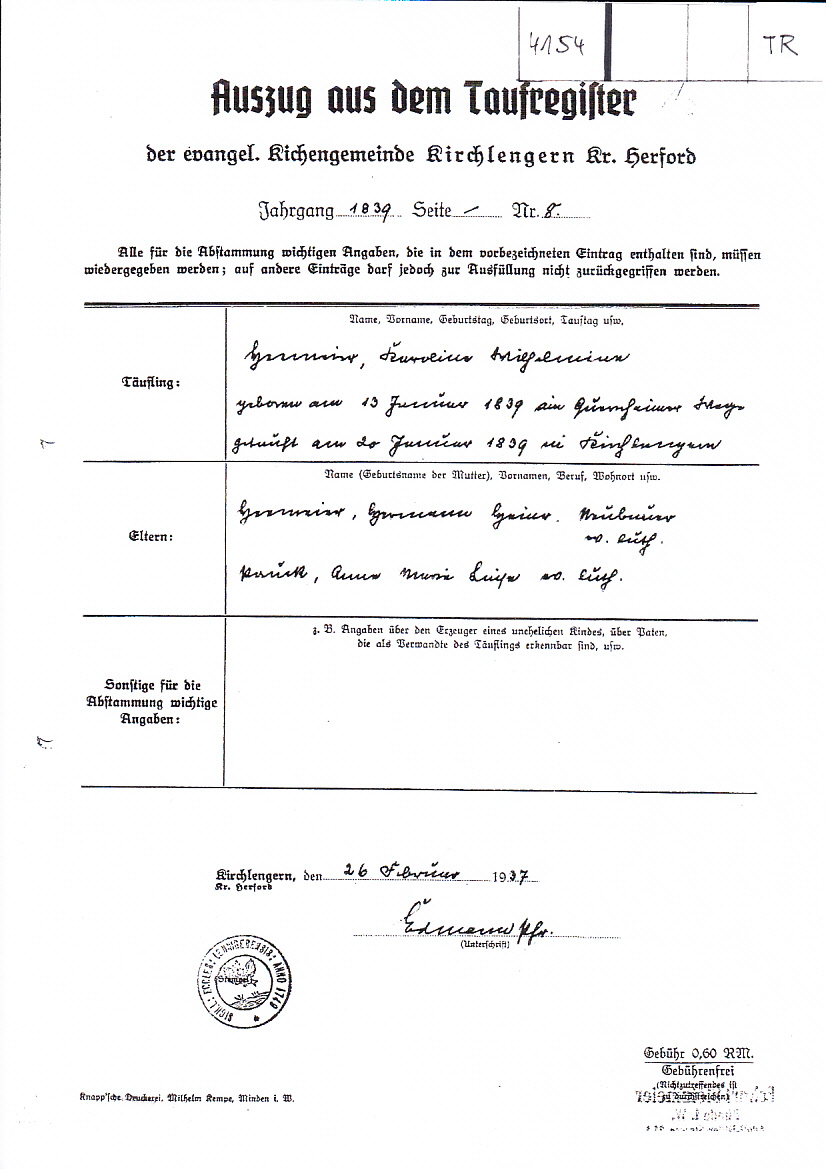 4154
TR
Auszug aus dem Taufregister
der evangel. Kichengemeinde Kirchlengern Kr. Herford
Jahrgang 1839 Seite — Nr. 8.
Alle für die Abstammung wichtigen Angaben, die in dem vorbezeichneten Eintrag enthalten sind, müssen
wiedergegeben werden; auf andere Einträge darf jedoch zur Ausfüllung nicht zurückgegriffen werden.
Name, Vorname, Geburtstag, Geburtsort, Tauftag usw.
Täufling:
Karoline Wilhelmine
geboren am 13 Januar 1839 am Quernheimer Wege
getauft am 20 Januar 1839 in Kirchlengern
Name (Geburtsname der Mutter), Vornamen, Beruf, Wohnort usw.
Eltern:
Hermann Heinr. Neubauer
ev. luth.
Pauck, Anne Marie Luise ev. luth.
z. B. Angaben über den Erzeuger eines unehelichen Kindes, über Paten,
die als Verwandte des Täuflings erkennbar sind, usw.
Sonstige für die
Abstammung wichtige
Angaben:
Kirchlengern, den 26 Februar 1937
Kr. Herford
Pfr.
(Unterschrift)
SIGILL: ECCLES: ANNO 1749
Stempel
Gebühr 0,60 RM.
Gebührenfrei
(Nichtzutreffendes ist
zu durchstreichen)
Knapp'sche Druckerei, Wilhelm Kempe, Minden i. W.